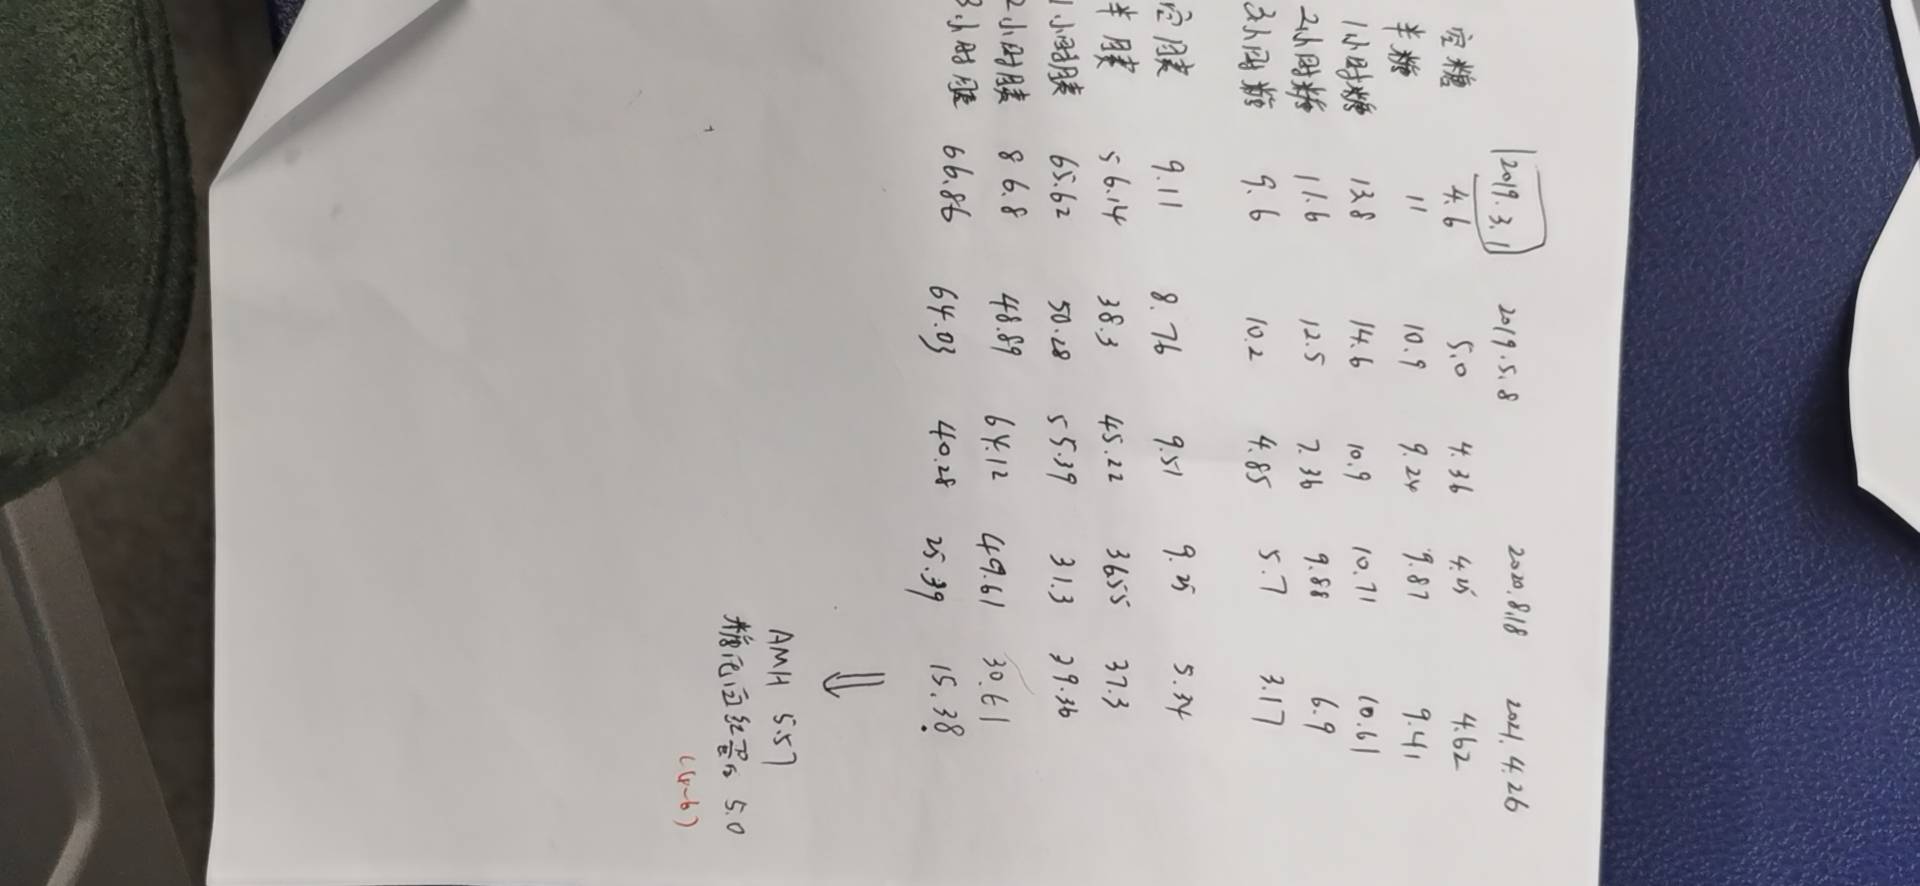 2019.3.1 2019.5.8 2020.8.18 2021.4.26
空糖 4.6 5.0 4.36 4.45 4.62
半糖 11 10.9 9.24 9.87 9.41
1小时糖 13.8 14.6 10.9 10.71 10.61
2小时糖 11.6 12.5 7.36 9.88 6.9
3小时糖 9.6 10.2 4.85 5.7 3.17
空胰 9.11 8.76 9.51 9.25 5.34
半胰 56.14 38.3 45.22 36.55 37.3
1小时胰 65.62 50.28 55.39 31.3 39.36
2小时胰 86.8 48.89 64.12 49.61 30.61
3小时胰 66.86 64.03 40.28 25.39 15.38
⇓
AMH 5.57
糖化血红蛋白 5.0
(4~6)